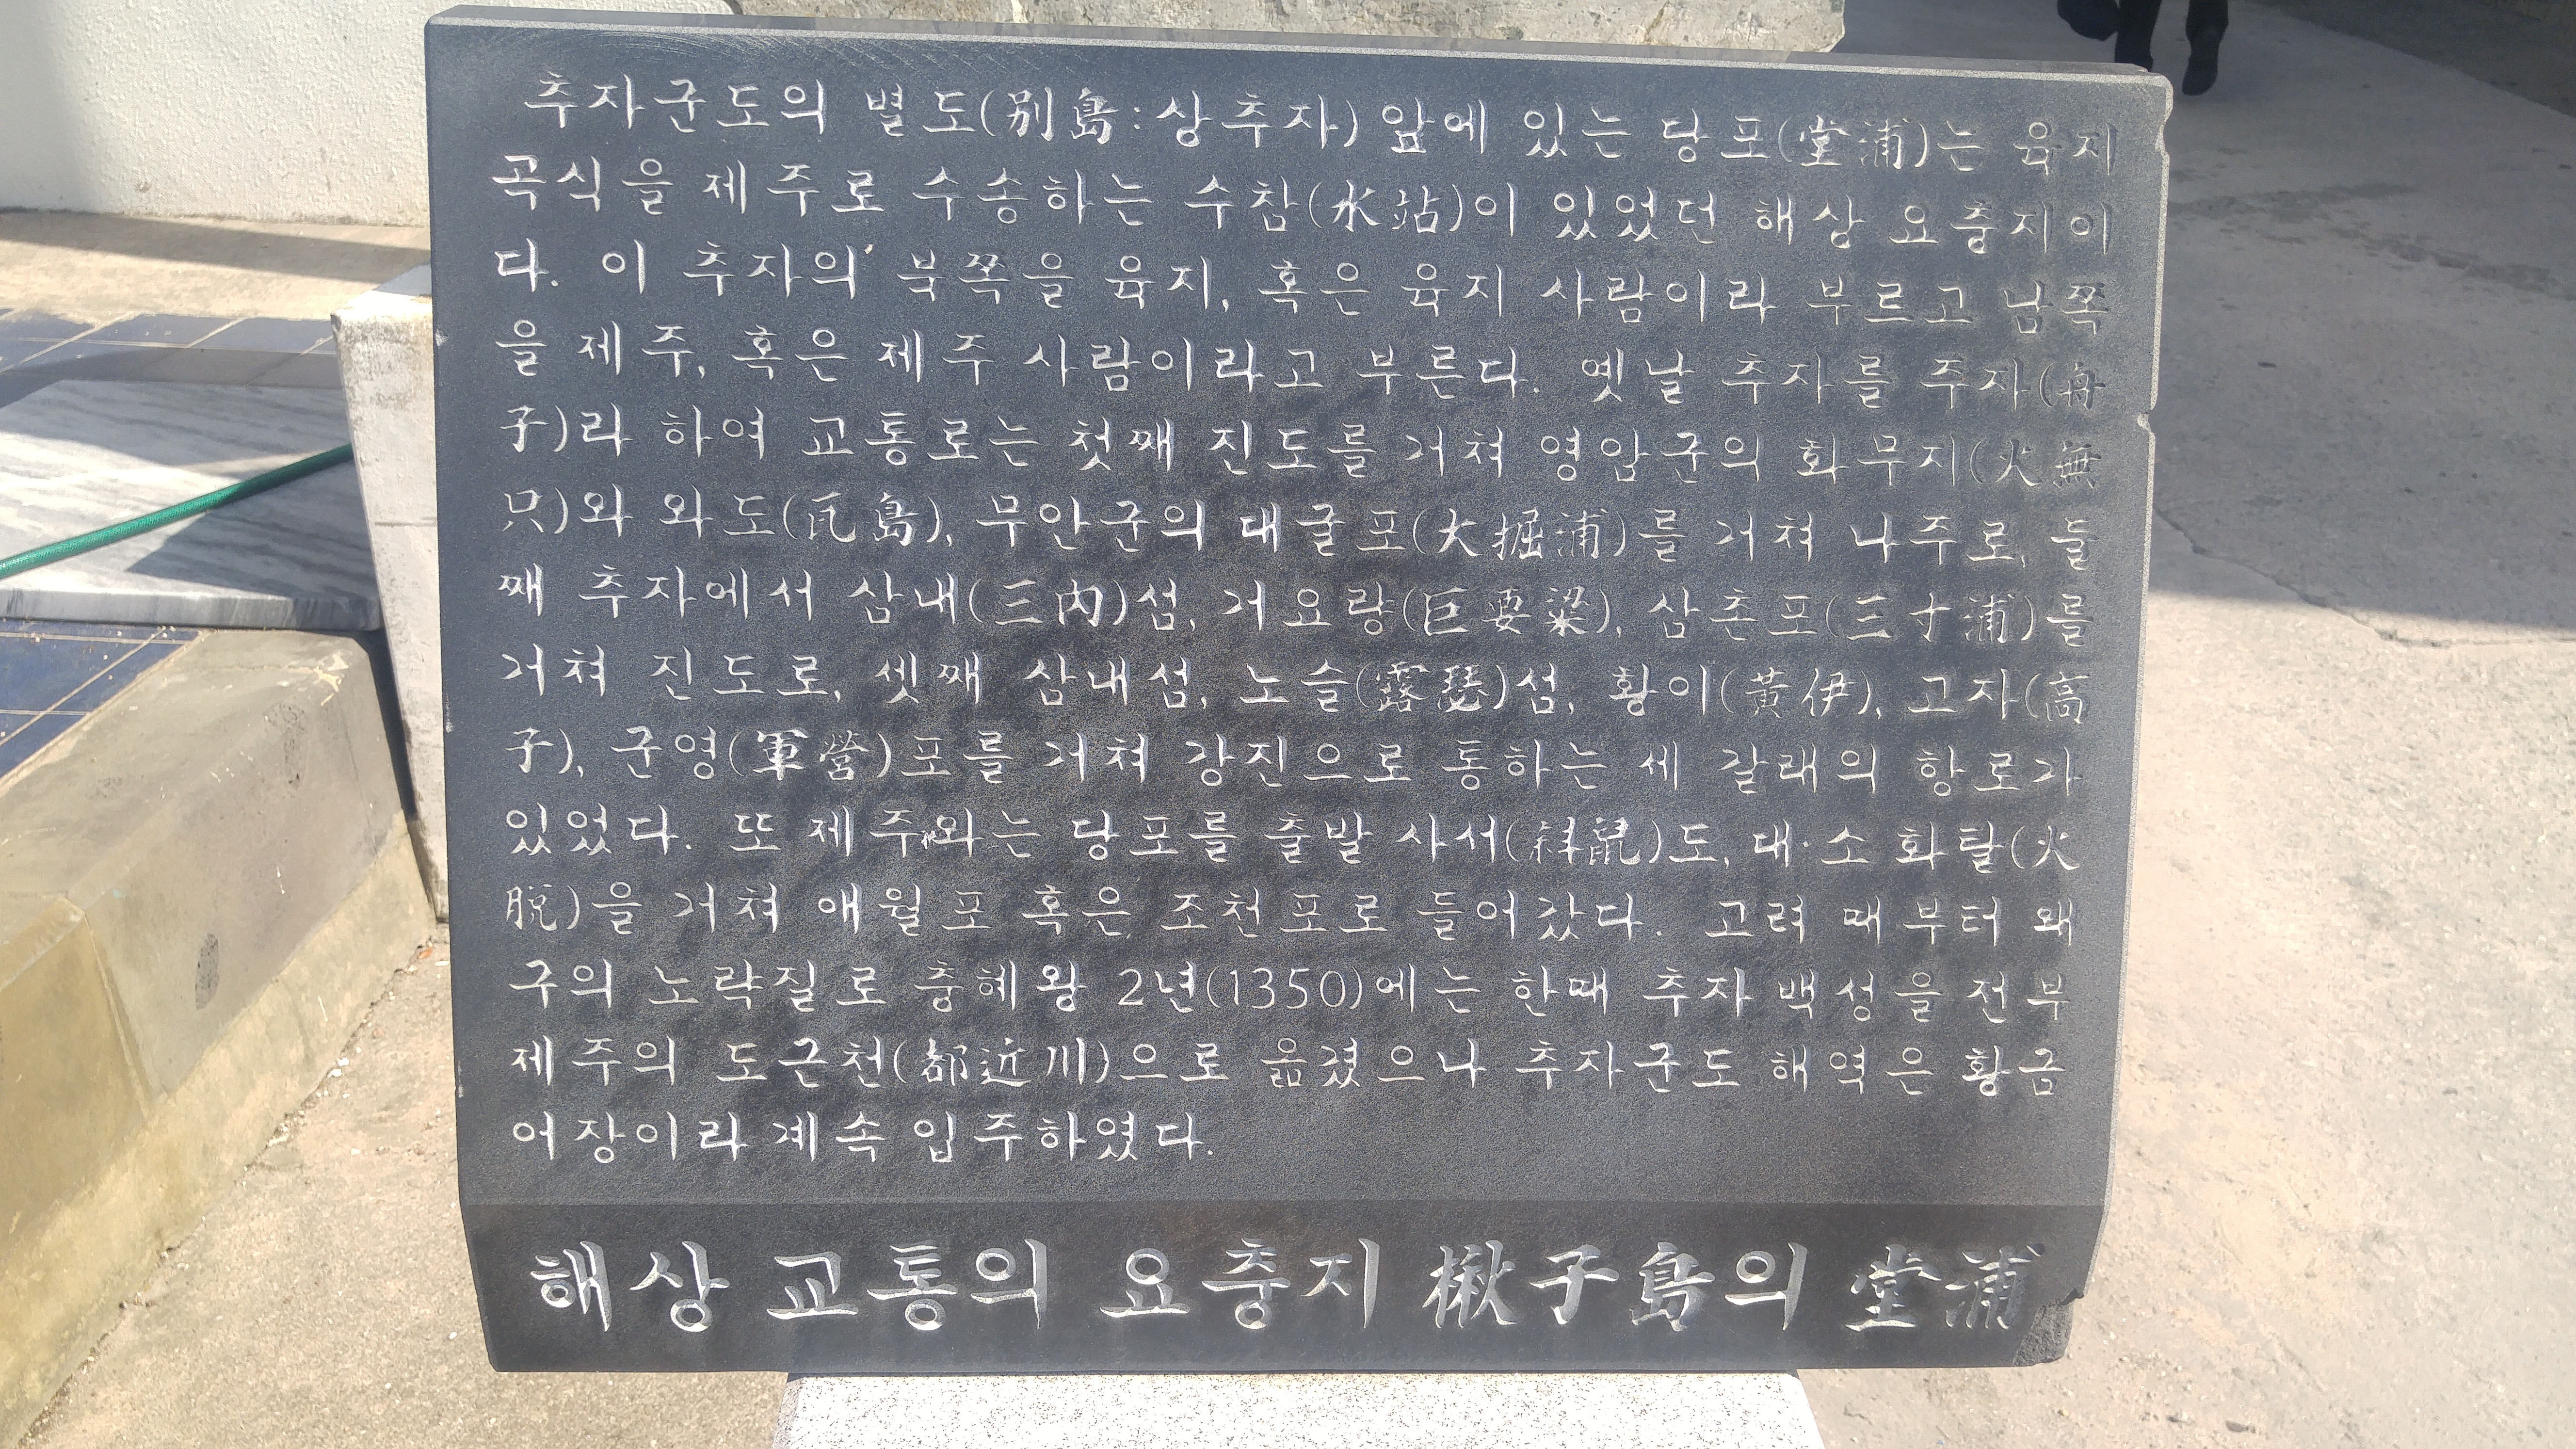 추자군도의 별도(別島:상추자) 앞에 있는 당포(堂浦)는 육지
곡식을 제주로 수송하는 수참(水站)이 있었던 해상 요충지이
다. 이 추자의 북쪽을 육지, 혹은 육지 사람이라 부르고 남쪽
을 제주, 혹은 제주 사람이라고 부른다. 옛날 추자를 주자(舟
子)라 하여 교통로는 첫째 진도를 거쳐 영암군의 화무지(火無
只)와 와도(瓦島), 무안군의 대굴포(大掘浦)를 거쳐 나주로, 둘
째 추자에서 삼내(三內)섬, 거요량(巨要梁), 삼촌포(三寸浦)를
거쳐 진도로, 셋째 삼내섬, 노슬(露瑟)섬, 황이(黃伊), 고자(高
子), 군영(軍營)포를 거쳐 강진으로 통하는 세 갈래의 항로가
있었다. 또 제주와는 당포를 출발 사서(斜鼠)도, 대·소 화탈(火
脫)을 거쳐 애월포 혹은 조천포로 들어갔다. 고려 때부터 왜
구의 노략질로 충혜왕 2년(1350)에는 한때 추자 백성을 전부
제주의 도근천(都近川)으로 옮겼으나 추자군도 해역은 황금
어장이라 계속 입주하였다.
해상 교통의 요충지 楸子島의 堂浦